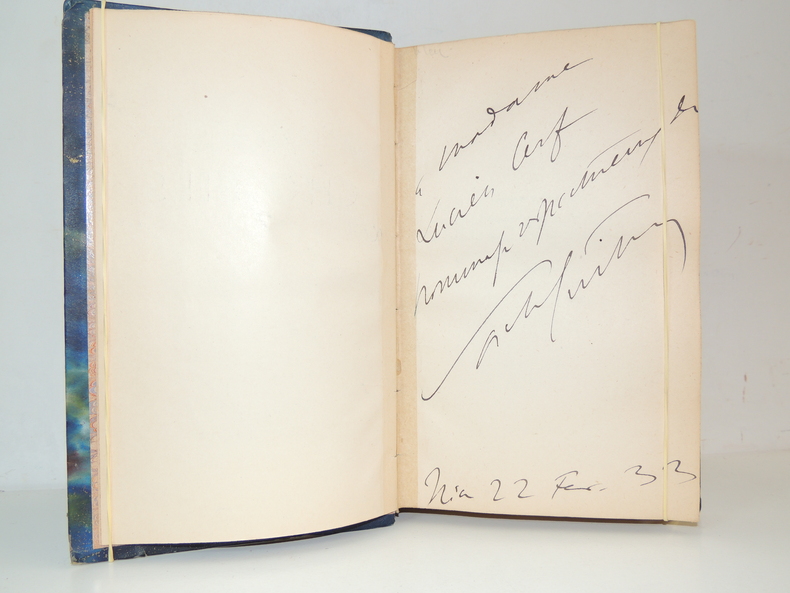 à madame
Lucien Cerf
hommage respectueux de
Sacha Guitry
Nice 22 Fev. 33